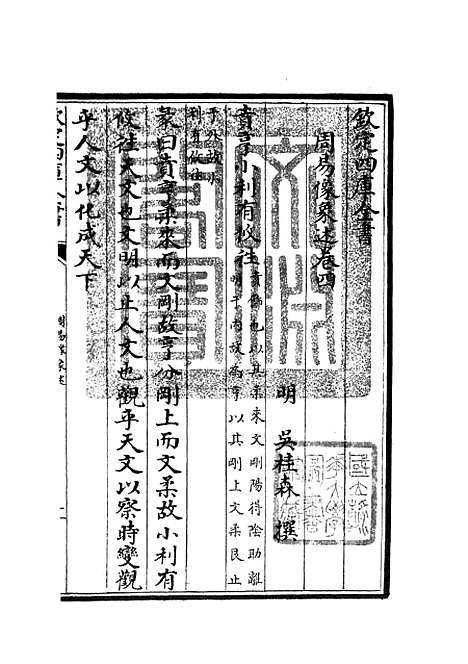 欽定四庫全書
周易像象述卷四
明 吳桂森 撰
賁亨小利有攸往
賁飾也以其柔來文剛陽得陰助離
明于內故為亨以其剛上文柔艮止
于外故小
利有攸往
彖曰賁亨柔來而文剛故亨分剛上而文柔故小利有
攸往天文也文明以止人文也觀乎天文以察時變觀
乎人文以化成天下
欽定四庫全書
周易像象述